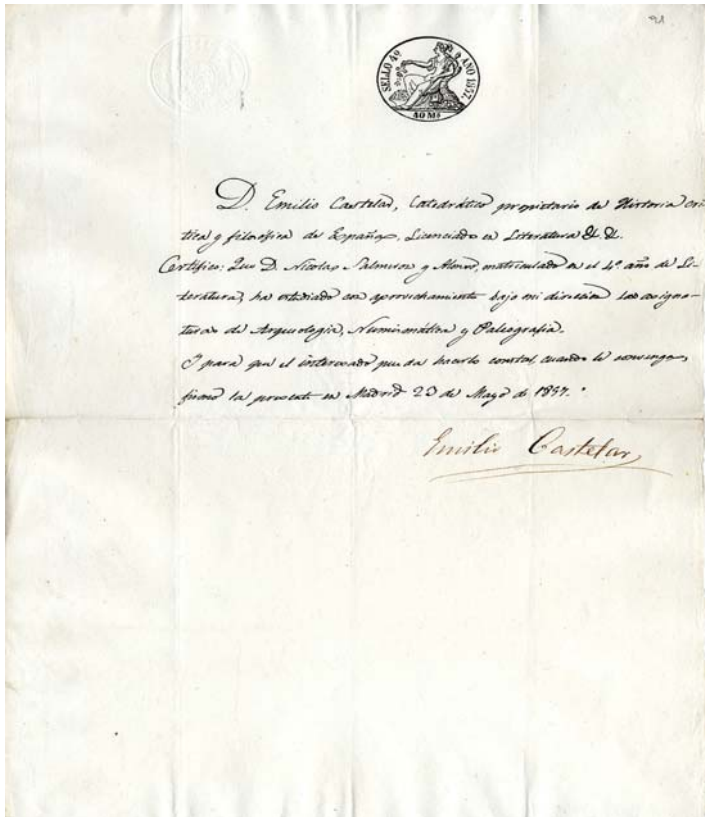 91
SELLO 4º AÑO 1857.
40 Ms
D. Emilio Castelar, Catedrático propietario de Historia crí-
tica y filosófica de España, Licenciado en Literatura &. &.
Certifico: Que D. Nicolas Salmeron y Alonso, matriculado en el 4º año de Li-
teratura, ha estudiado con aprovechamiento bajo mi direccion las asigna-
turas de Arqueologia, Numismática y Paleografia.
I para que el interesado pueda hacerlo constar, cuando le convenga,
firmo la presente en Madrid 23 de Mayo de 1857.
Emilio Castelar